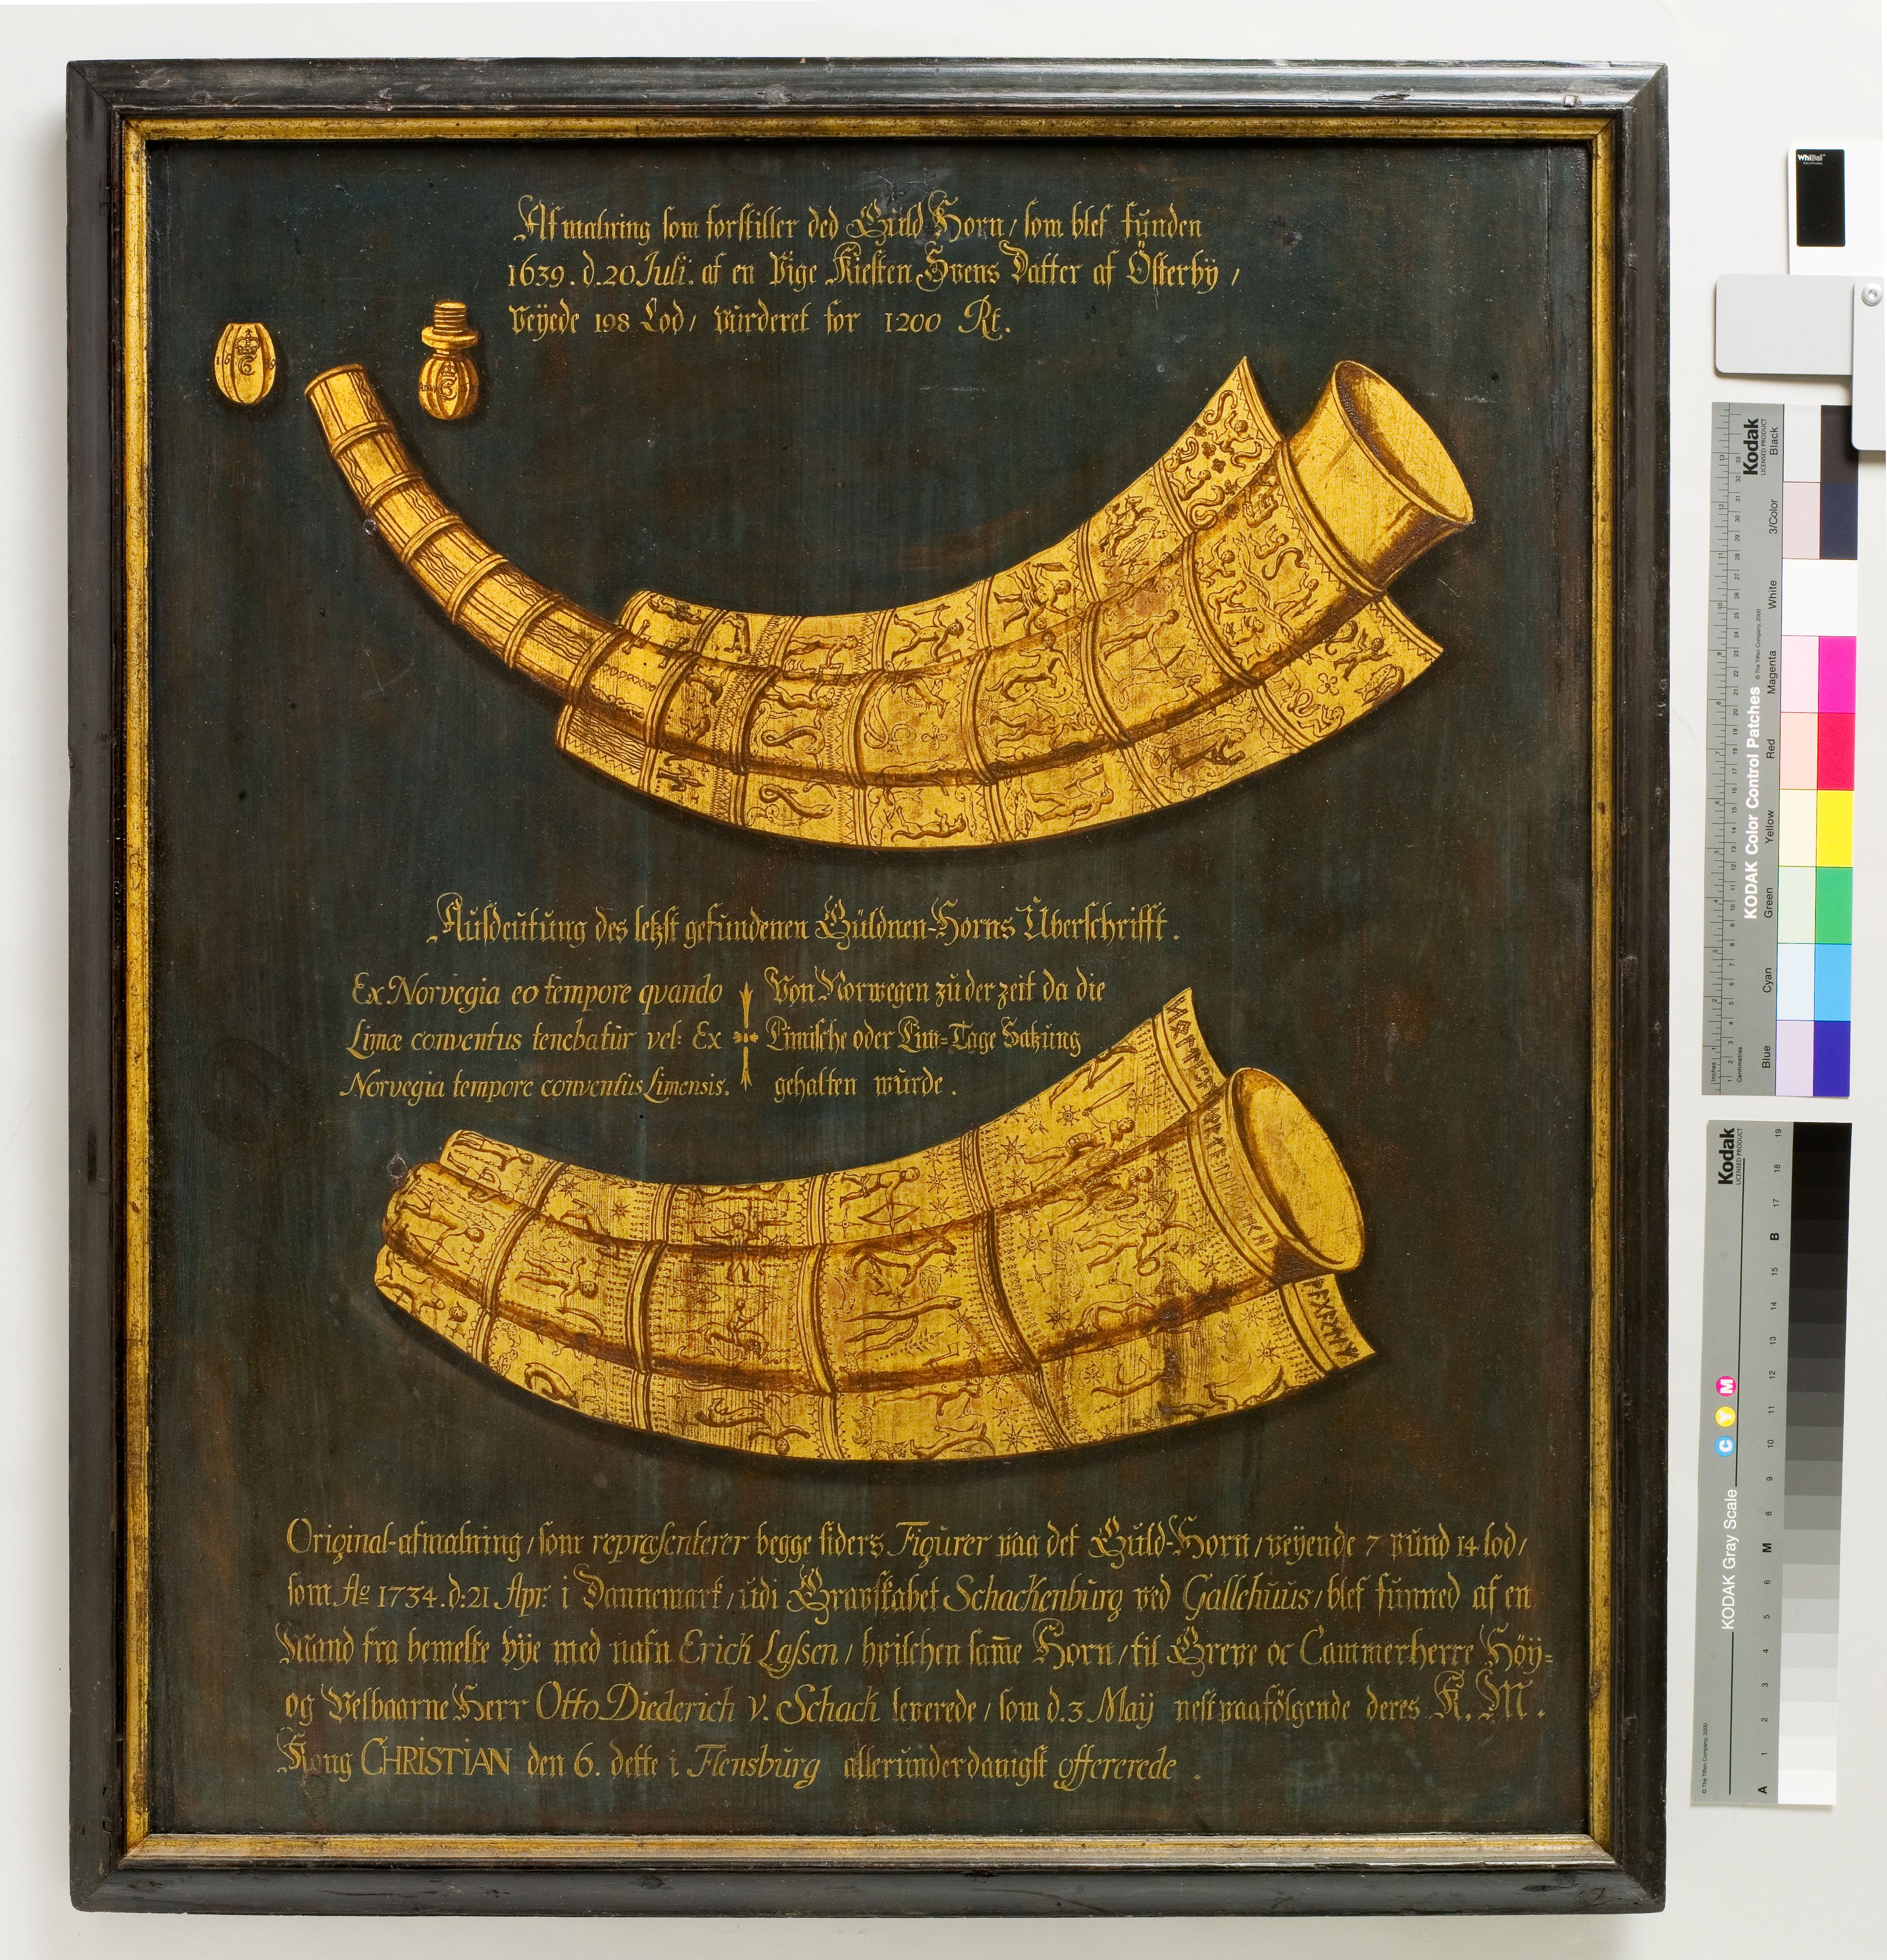 Afmalning som forstiller ded Guld Horn / som blef funden
1639. d. 20 Julÿ. af en Pige Kirsten Svens Datter af Österbÿ /
Veÿede 198 Lod / vurderet for 1200 Rt.
Ausdeutung des letzst gefundenen Güldnen-Horns Überschrifft.
Ex Norvegia eo tempore qvando
Limæ conventus tenebatur vel: Ex
Norvegia tempore conventus Limensis.
Von Norwegen zu der zeit da die
Limische oder Lim=Tage Satzung
gehalten wurde.
Original-afmalning / som repræsenterer begge siders Figurer paa det Guld-Horn / veÿende 7 pund 14 lod /
som Ao 1734. d: 21 Apr: i Dannemark / udi Gravskabet Schackenburg ved Gallehuus / blef funned af en
Mand fra bemelte Bÿe med nafn Erick Lassen / hvilchen sam̅e Horn / til Greve oc Cammerherre Höÿ=
og Velbaarne Herr Otto Diederich v. Schack leverede / som d. 3 Maÿ nest paafölgende deres K. M.
Kong CHRISTIAN den 6. dette i Flensburg allerunderdanigst offererede.
ᚺᛟᛚᛏᛁ
WhiBal
Kodak
LICENSED PRODUCT
KODAK Color Control Patches
© The Tiffen Company, 2000
Blue
Cyan
Green
Yellow
Red
Magenta
White
3/Color
Black
Inches
Centimetres
Kodak
LICENSED PRODUCT
KODAK Gray Scale
C Y M
© The Tiffen Company, 2000
A 1 2 3 4 5 6 M 8 9 10 11 12 13 14 15 B 17 18 19